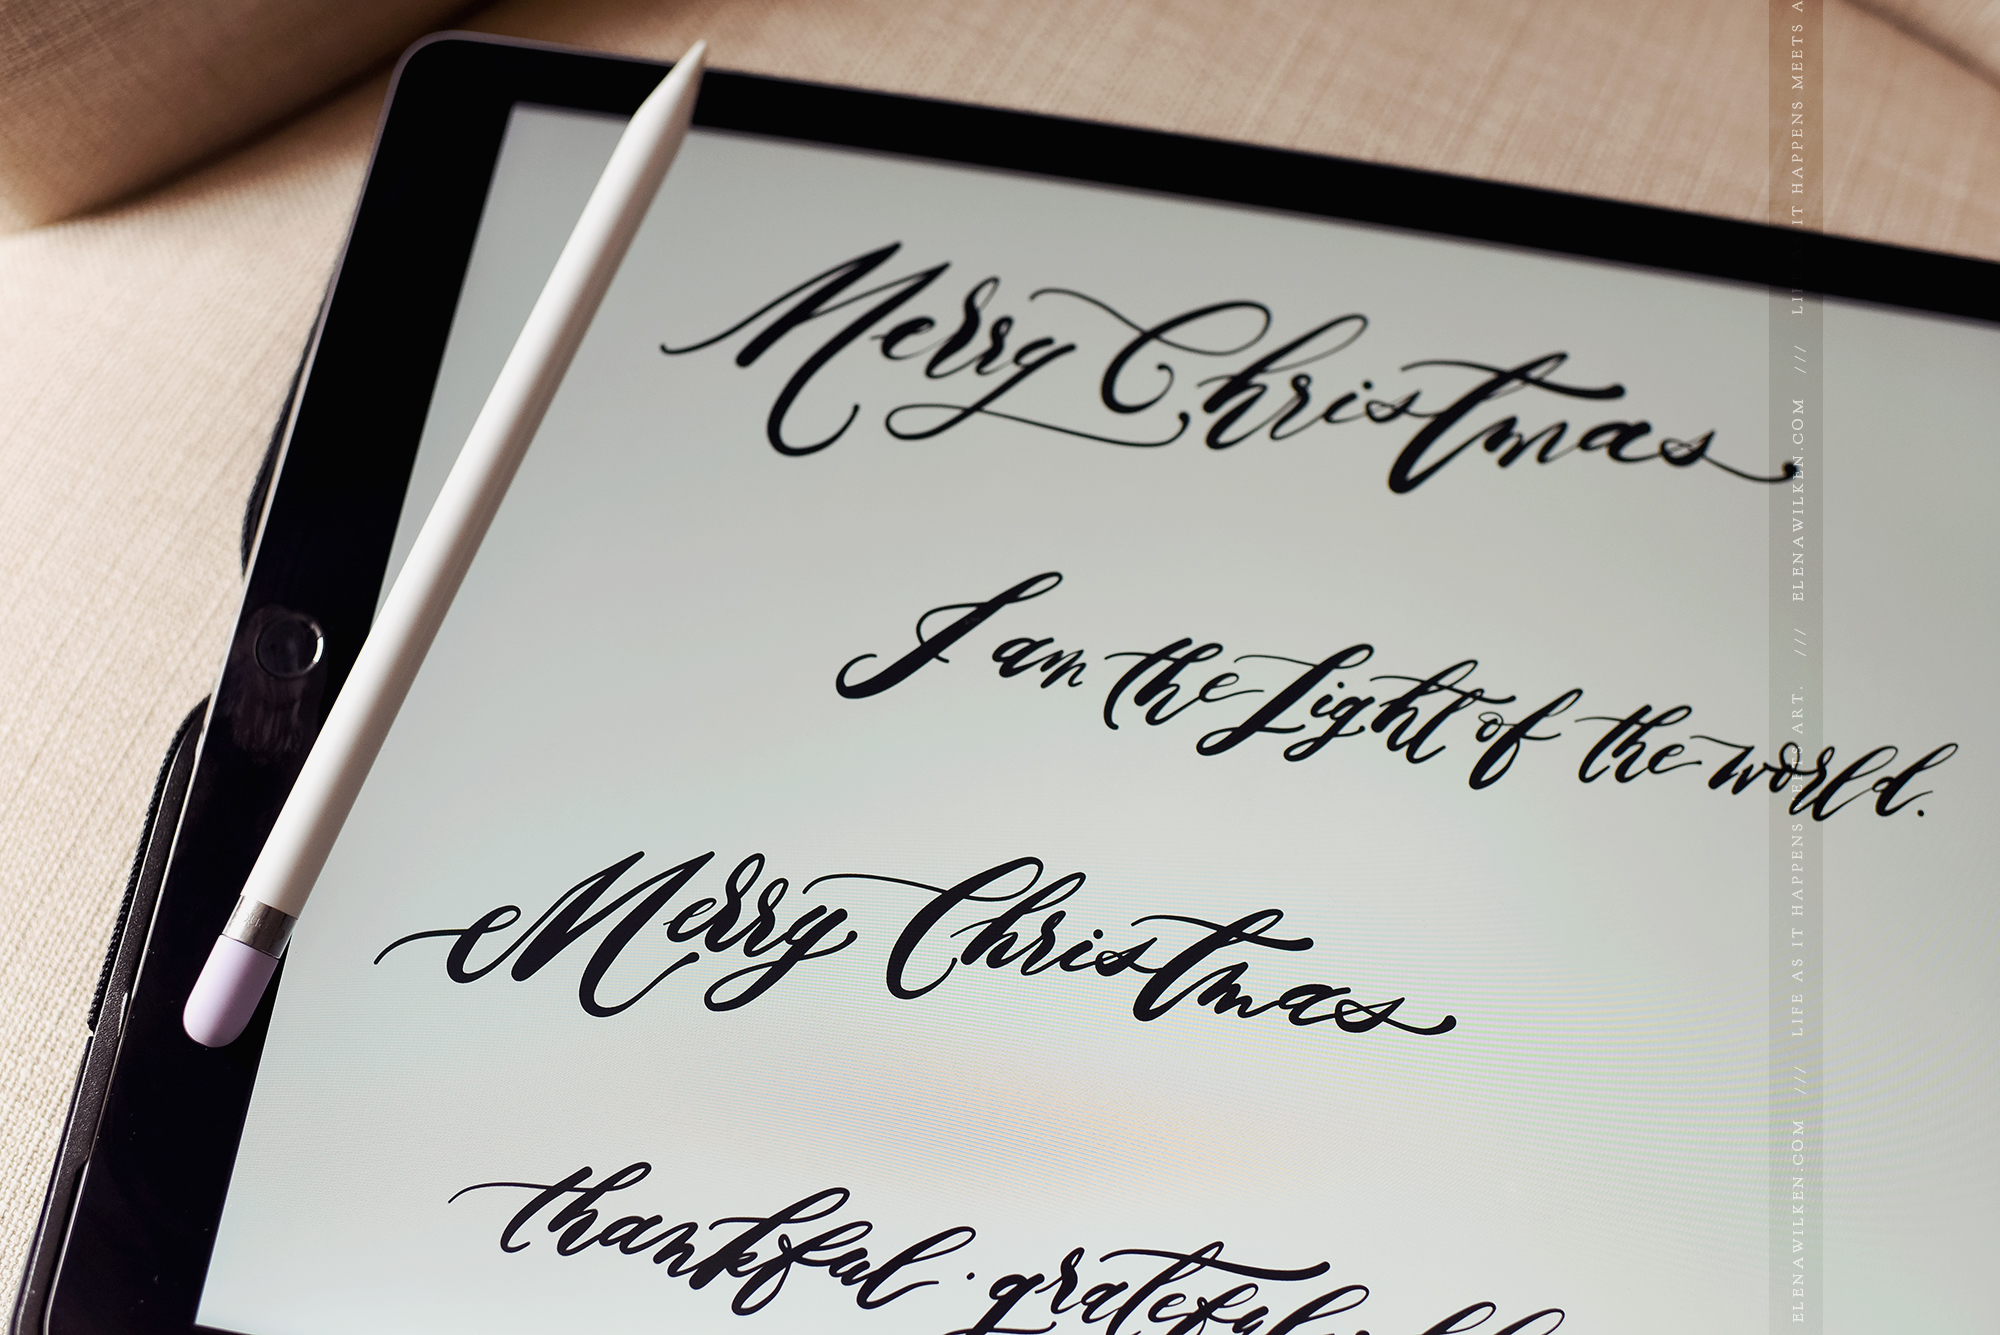 Merry Christmas
I am the Light of the world.
Merry Christmas
thankful · grateful
LIFE AS IT HAPPENS MEETS ART. /// ELENAWILKEN.COM /// LIFE AS IT HAPPENS MEETS
ELENAWILKEN.COM ///